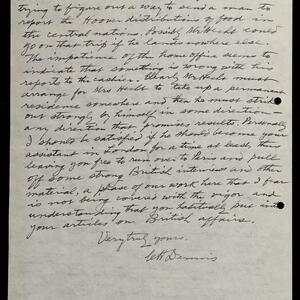 trying to figure out a way to send a man to
report the Hoover distributions of food in
the central nations. Possibly Mr Hecht could
go on that trip if he lands nowhere else.
The impatience of the home office seems to
indicate that something is wrong with his
report to the cashier. Clearly Mr Hecht must
arrange for Mrs Hecht to take up a permanent
residence somewhere and then he must strike
out strongly by himself in some direction—
any direction that promises results. Personally
I should be satisfied if he should become your
assistant in London for a time at least, thus
leaving you free to run over to Paris and pull
off some strong British interviews and other
material, a phase of our work here that I fear
is not being covered with the vigor and
understanding that you habitually put into
your articles on British affairs.
Very truly yours,
CH Dennis